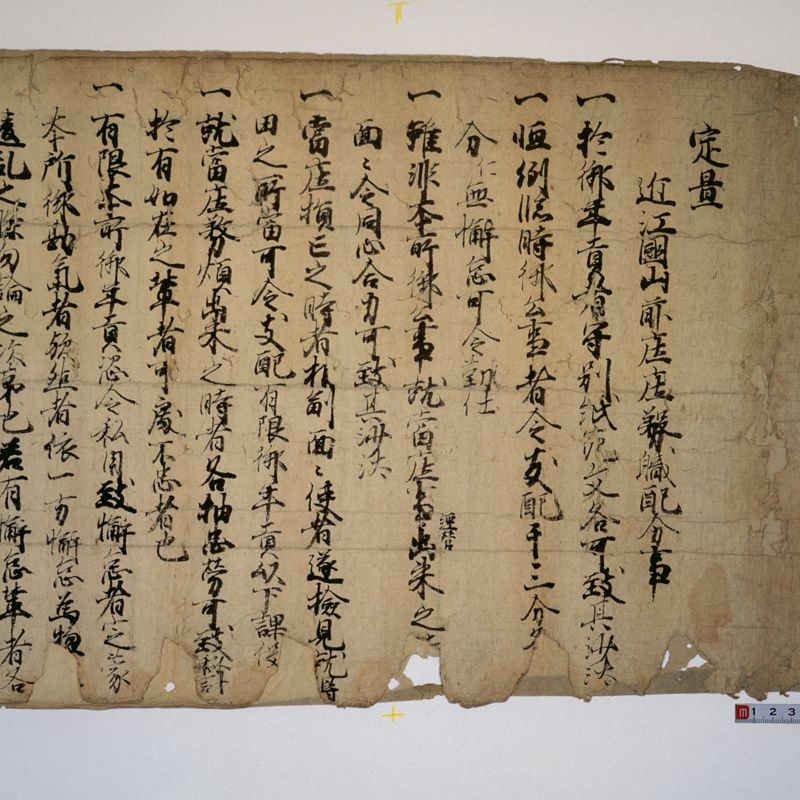 定置
近江國山前庄庄務職配分事
一 於御年貢者守別紙宛文各可致其沙汰
一 恒例臨時御公事者令支配于三分
分仁無懈怠可令勤仕
一 雖非本所御公事就當庄事出来之
面々令同心合力可致其沙汰
一 當庄損亡之時者相副面々使者遂檢見就得
田之所當可令支配有限御年貢以下課役
一 就當庄務煩出来之時者各抽忠勞可致秘計
於有如在之輩者可處不忠者也
一 有限本所御年貢恣令私用致懈怠者定蒙
本所御勘氣者歟然者依一方懈怠為物
違乱之條勿論之次第也若有懈怠輩者各
m 1 2 3